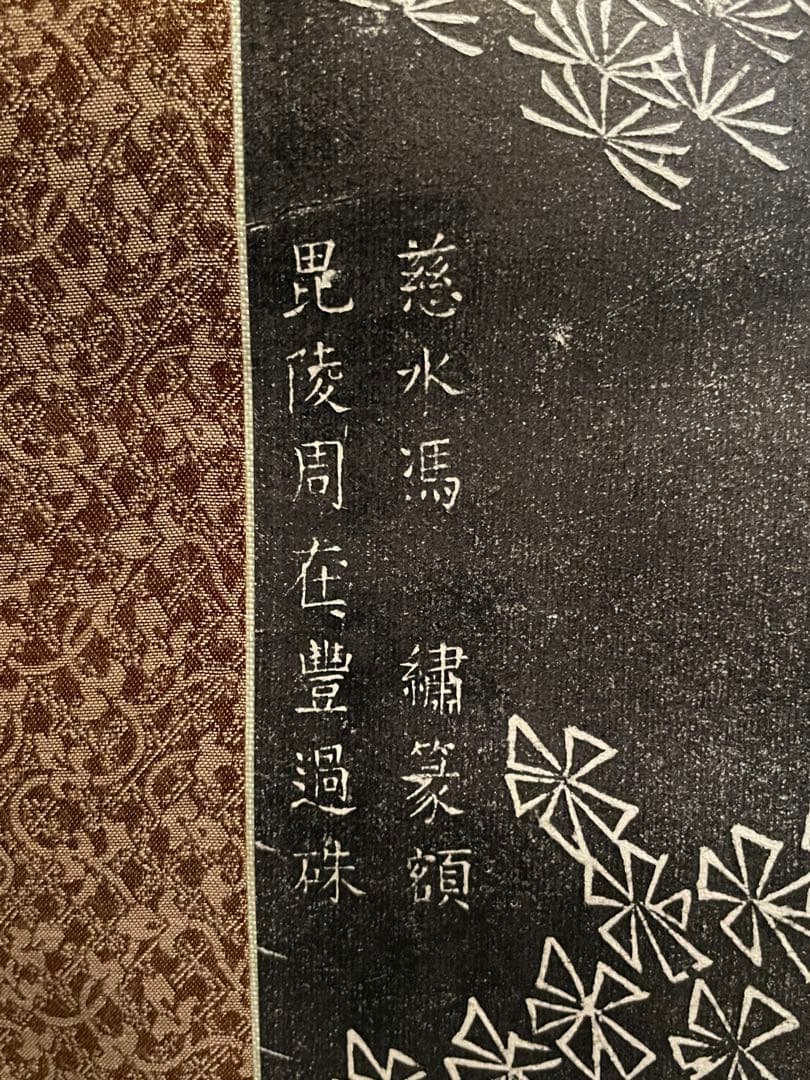 慈水馮 繡篆額
毘陵周在豐過硃